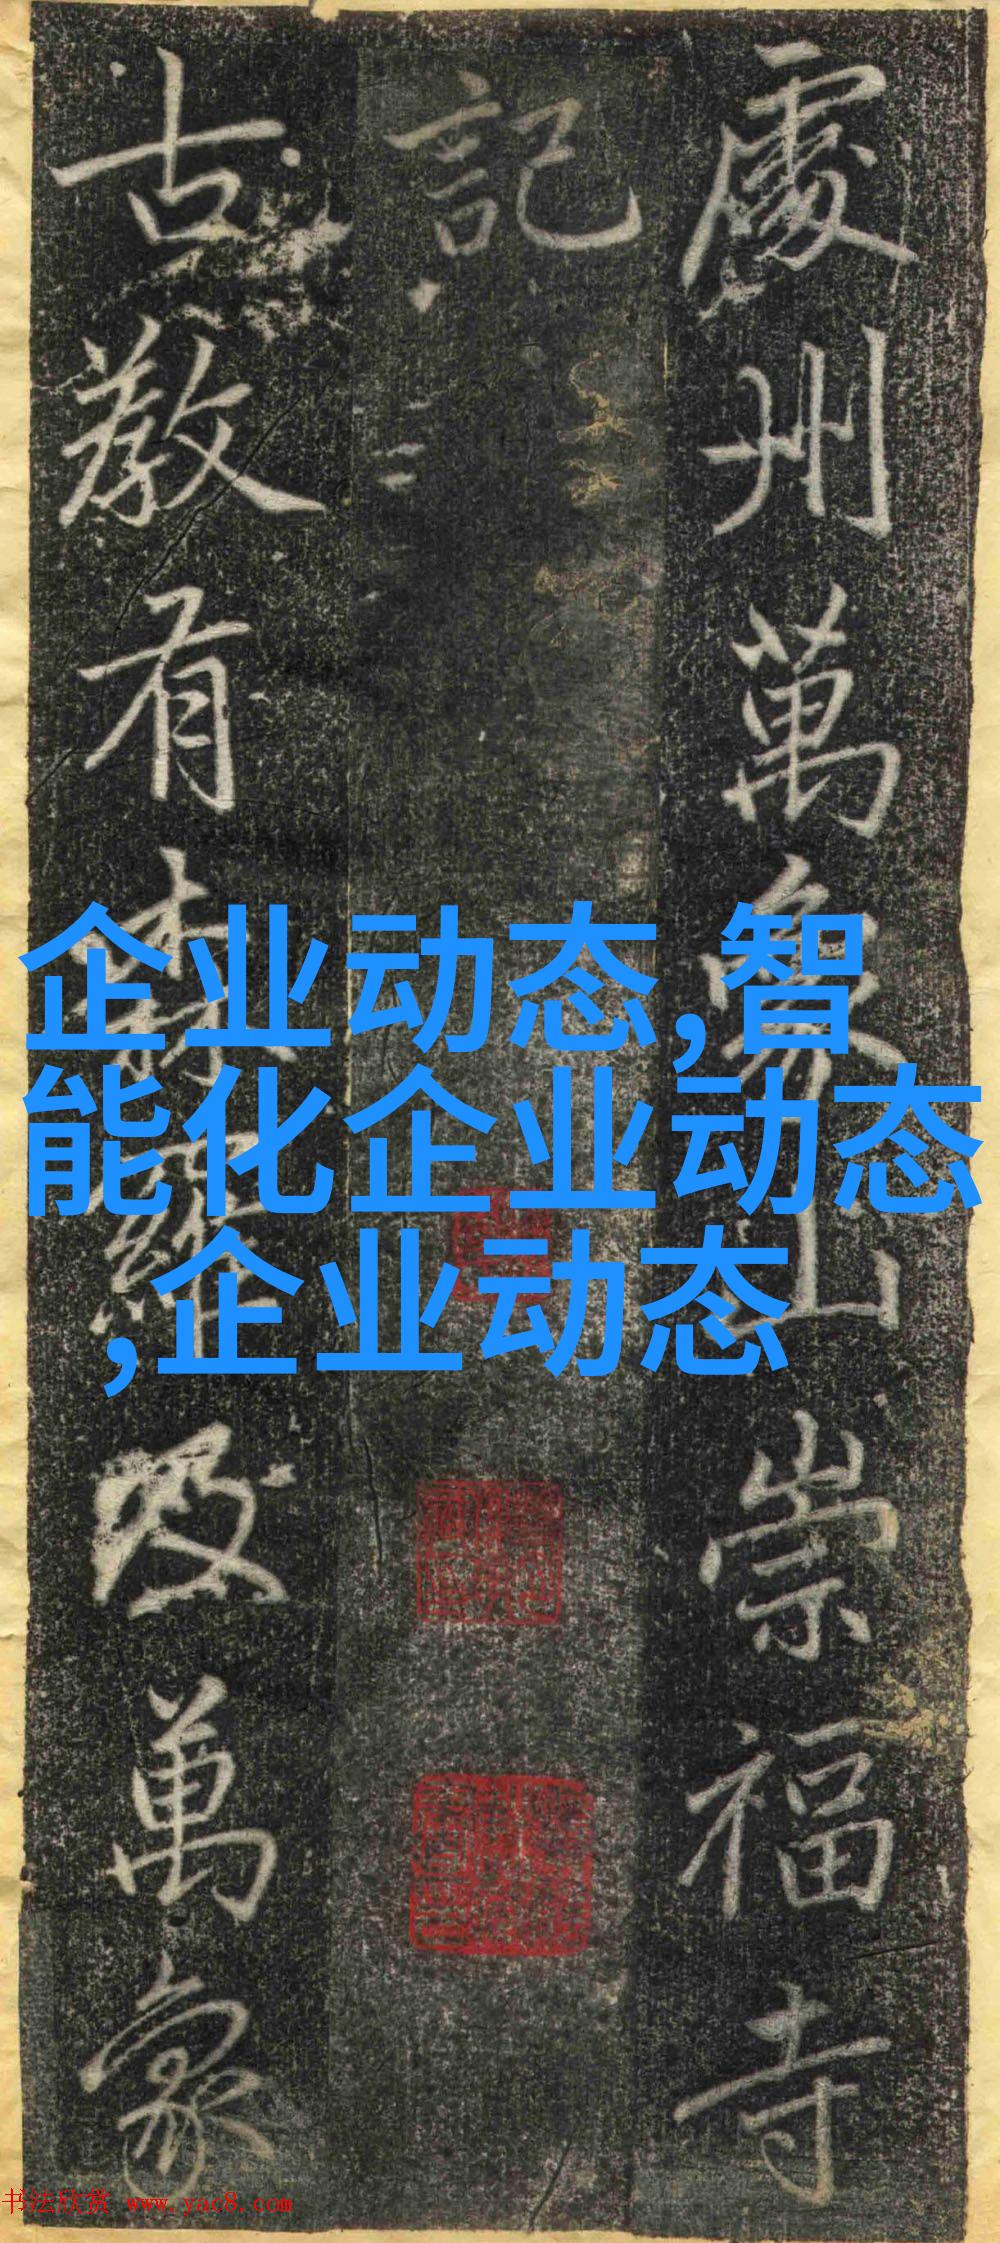 處州萬象山崇福寺
記
古教有森羅及萬象
企业动态,智
能化企业动态
,企业动态
书法欣赏 www.yac8.com